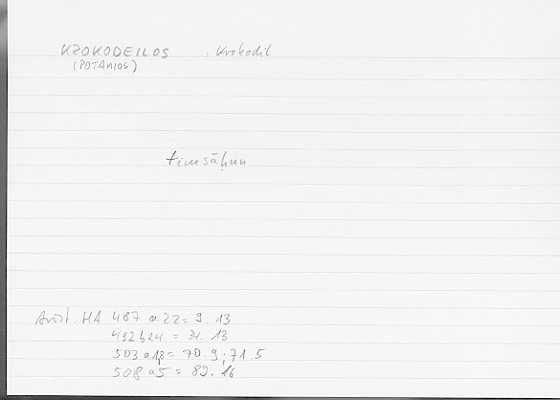 KROKODEILOS : Krokodil
(POTAMIOS)
timsāḥun
Arist. HA 487 a 22 = 9. 13
492 b 24 = 31. 13
503 a 18 = 70. 9 ; 71. 5
508 a 5 = 89. 16